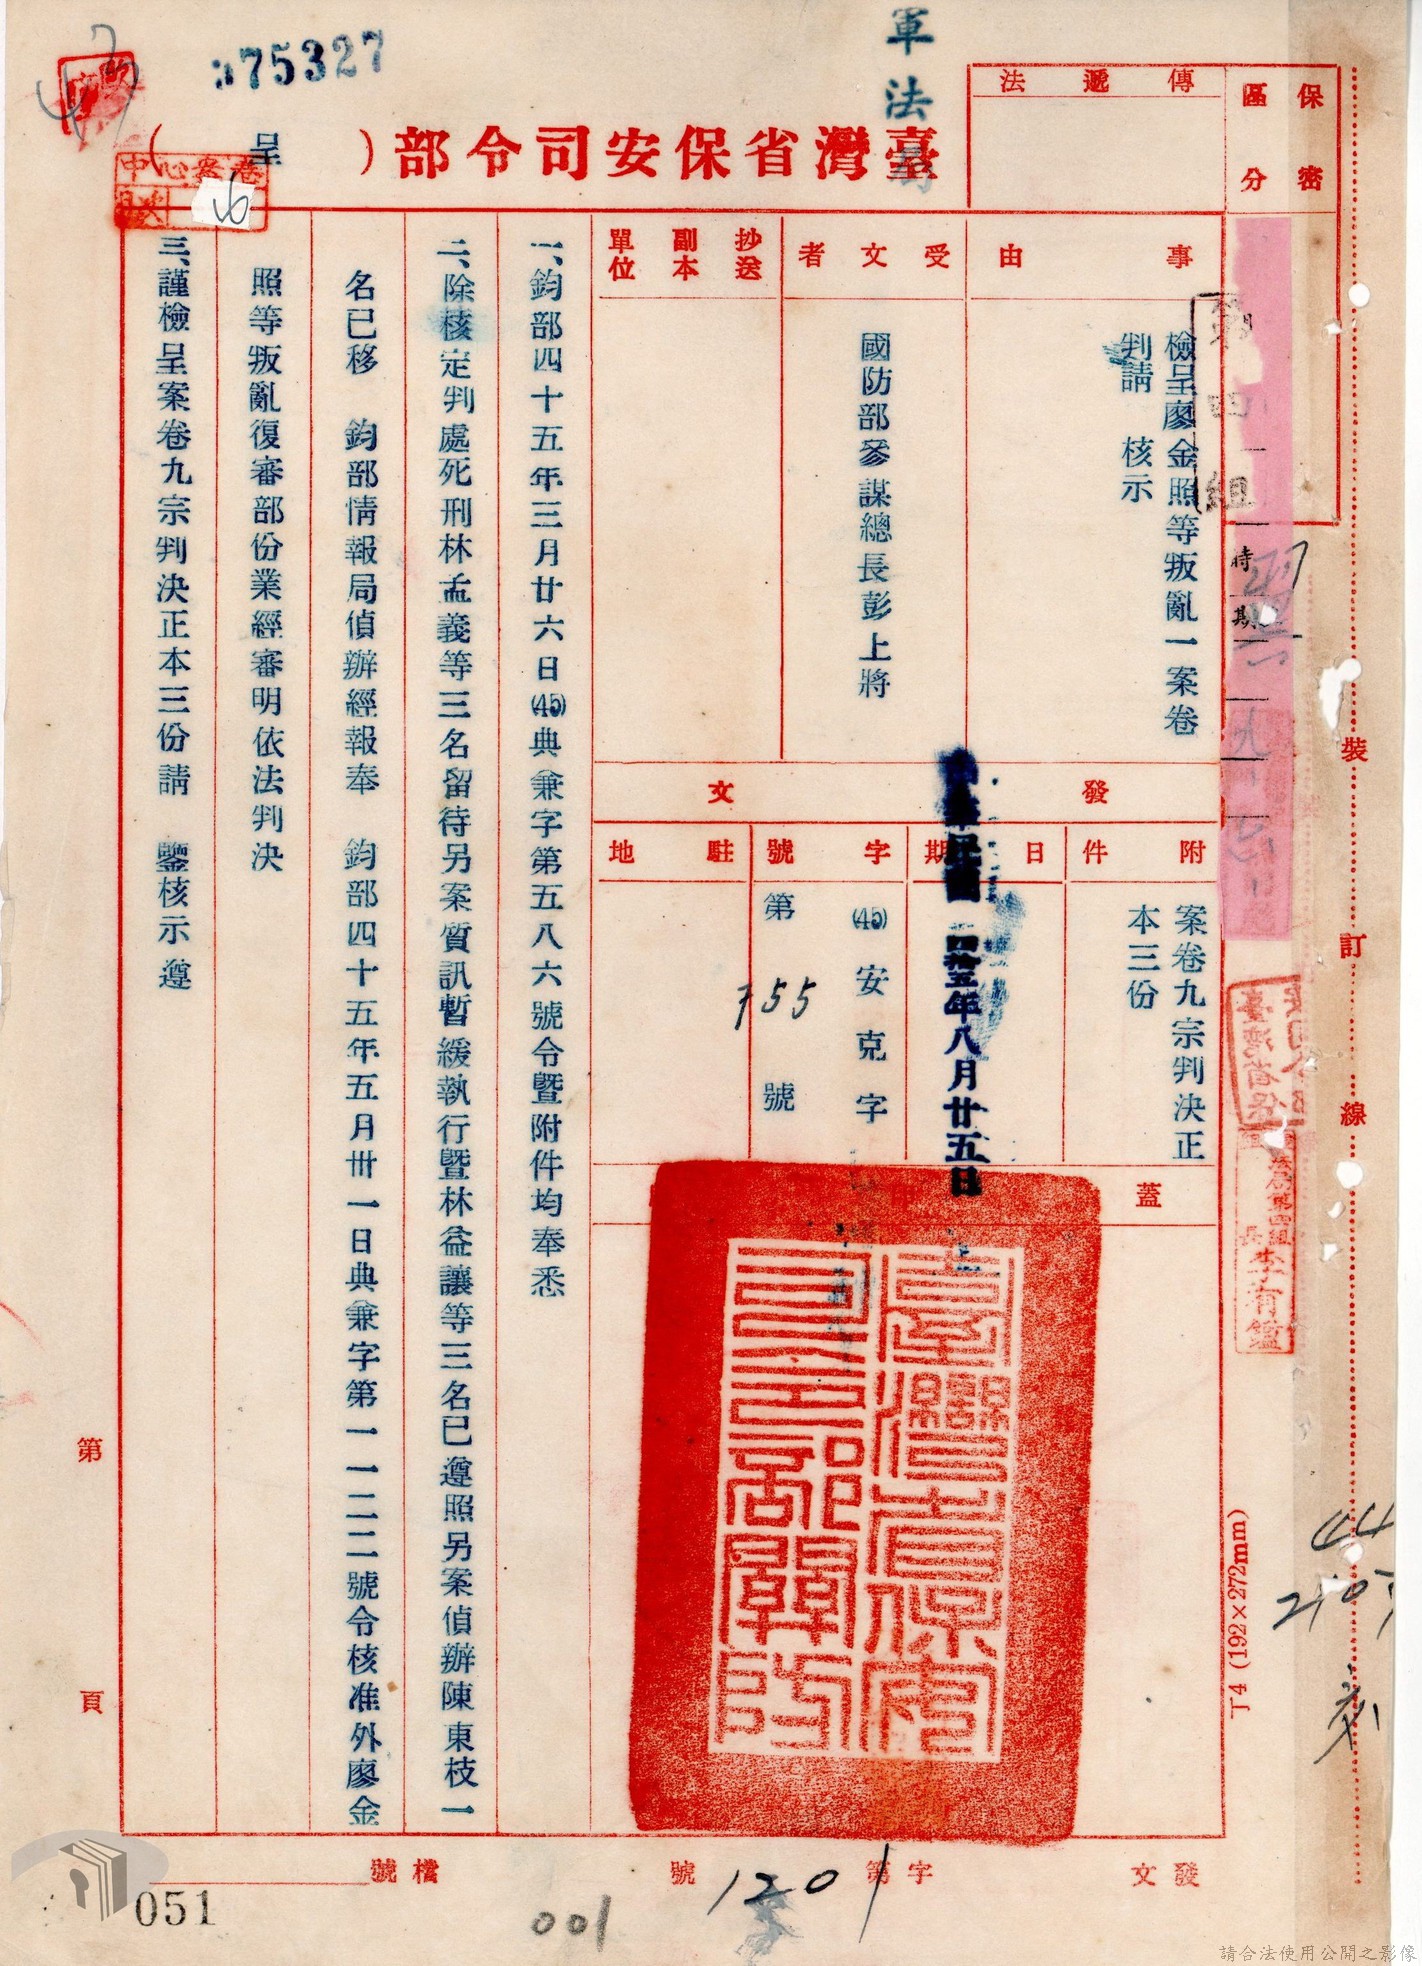 075327
軍法局
臺灣省保安司令部(呈)
中心案卷
傳遞法
保密區分
事由
檢呈廖金照等叛亂一案卷
判請　核示
受文者
國防部參謀總長彭上將
抄送副本單位
發文
附件
案卷九宗判決正
本三份
日期
中華民國四拾五年八月廿五日
字號
(45)安克字
第755號
駐地
蓋
臺灣省保安司令部關防
一、鈞部四十五年三月廿六日(45)典兼字第五八六號令暨附件均奉悉
二、除核定判處死刑林孟義等三名留待另案質訊暫緩執行暨林益讓等三名已遵照另案偵辦陳東枝一
名已移　鈞部情報局偵辦經報奉　鈞部四十五年五月卅一日典兼字第一一二二號令核准外廖金
照等叛亂復審部份業經審明依法判決
三、謹檢呈案卷九宗判決正本三份請　鑒核示遵
第四組
時期
臺灣省保
李有鑑
裝訂線
丁4(192×272mm)
第　頁
發文　字第1201號
檔號
001
051
請合法使用公開之影像